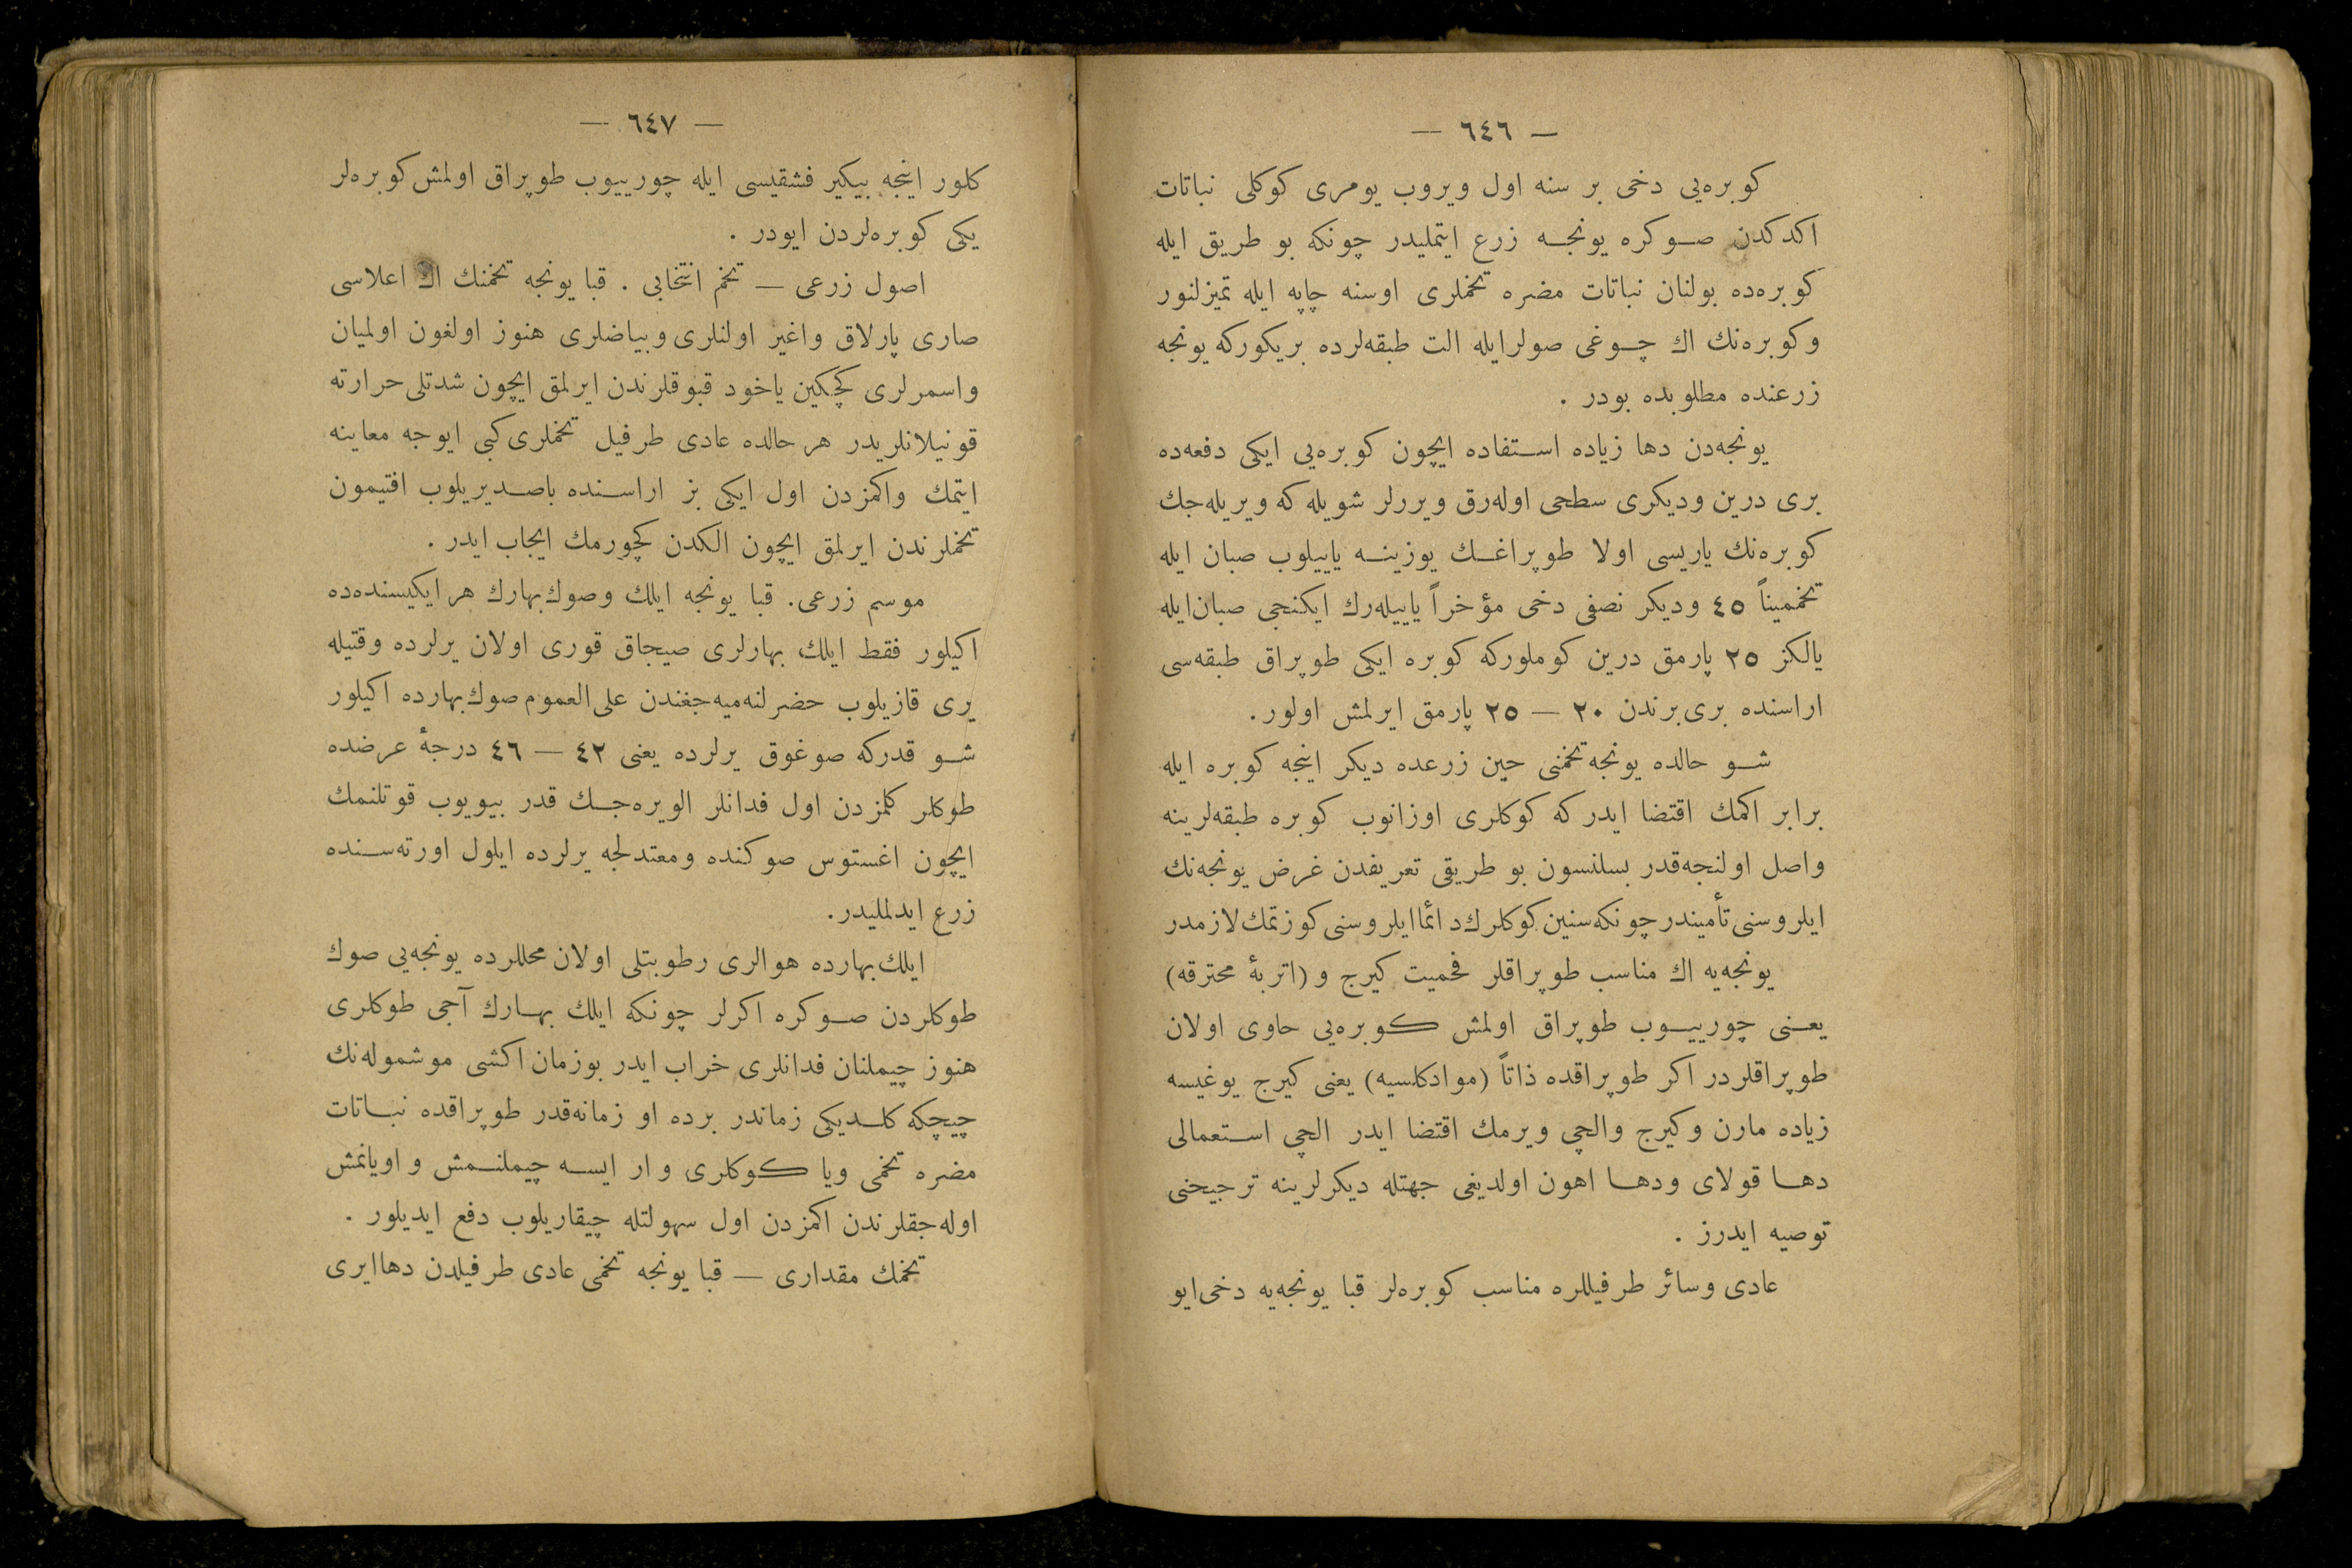 — ٦٤٦ —
كوبره‌يی دخی بر سنه اول ويروب يومری كوكلی نباتات
اكدكدن صوكره يونجه زرع ايتمليدر چونكه بو طريق ايله
كوبره‌ده بولنان نباتات مضره تخملری اوسنه چاپه ايله تميزلنور
وكوبره‌نك اك چوغی صولرايله الت طبقه‌لرده بريكوركه يونجه
زرعنده مطلوبده بودر .
يونجه‌دن دها زياده استفاده ايچون كوبره‌يی ايكی دفعه‌ده
بری درين وديكری سطحی اوله‌رق ويررلر شويله كه ويريله‌جك
كوبره‌نك ياريسی اولا طوپراغك يوزينه ياييلوب صبان ايله
تخميناً ٤٥ وديكر نصفی دخی مؤخراً ياييله‌رك ايكنجی صبان ايله
يالكز ٢٥ پارمق درين كوملوركه كوبره ايكی طوپراق طبقه‌سی
اراسنده بری برندن ٢٠ — ٢٥ پارمق ايرلمش اولور.
شو حالده يونجه تخمنی حين زرعده ديكر اينجه كوبره ايله
برابر اكمك اقتضا ايدر كه كوكلری اوزانوب كوبره طبقه‌لرينه
واصل اولنجه‌قدر بسلنسون بو طريقی تعريفدن غرض يونجه‌نك
ايلروسنی تأميندر چونكه سنين كوكلرك دائما ايلروسنی كوزتمك لازمدر
يونجه‌يه اك مناسب طوپراقلر فحميت كيرج و (اتربهٔ محترقه)
يعنی چورييوب طوپراق اولمش كوبره‌يی حاوی اولان
طوپراقلردر اكر طوپراقده ذاتاً (موادكلسيه) يعنی كيرج يوغيسه
زياده مارن وكيرج والچی ويرمك اقتضا ايدر الچی استعمالی
دها قولای ودها اهون اولديغی جهتله ديكرلرينه ترجيحنی
توصيه ايدرز .
عادی وسائر طرفيللره مناسب كوبره‌لر قبا يونجه‌يه دخی ايو
— ٦٤٧ —
كلور اينجه بيكير فشقيسی ايله چورييوب طوپراق اولمش كوبره‌لر
يكی كوبره‌لردن ايودر .
اصول زرعی — تخم انتخابی . قبا يونجه تخمنك اك اعلاسی
صاری پارلاق واغير اولنلری وبياضلری هنوز اولغون اولميان
واسمرلری كچكين ياخود قبوقلرندن ايرلمق ايچون شدتلی حرارته
قونيلانلريدر هر حالده عادی طرفيل تخملری كبی ايوجه معاينه
ايتمك واكمزدن اول ايكی بز اراسنده باصديريلوب افتيمون
تخملرندن ايرلمق ايچون الكدن كچورمك ايجاب ايدر .
موسم زرعی. قبا يونجه ايلك وصوك‌بهارك هر ايكيسنده‌ده
اكيلور فقط ايلك بهارلری صيجاق قوری اولان يرلرده وقتيله
يری قازيلوب حضرلنه‌ميه‌جغندن علی العموم صوك‌بهارده اكيلور
شو قدركه صوغوق يرلرده يعنی ٤٢ — ٤٦ درجهٔ عرضده
طوكلر كلمزدن اول فدانلر الويره‌جك قدر بيويوب قوتلنمك
ايچون اغستوس صوكنده ومعتدلجه يرلرده ايلول اورته‌سنده
زرع ايدلمليدر.
ايلك‌بهارده هوالری رطوبتلی اولان محللرده يونجه‌يی صوك
طوكلردن صوكره اكرلر چونكه ايلك بهارك آجی طوكلری
هنوز چيملنان فدانلری خراب ايدر بوزمان اكشی موشموله‌نك
چيچكه كلديكی زماندر برده او زمانه‌قدر طوپراقده نباتات
مضره تخمی ويا كوكلری وار ايسه چيملنمش و اويانمش
اوله‌جقلرندن اكمزدن اول سهولتله چيقاريلوب دفع ايديلور .
تخمك مقداری — قبا يونجه تخمی عادی طرفيلدن دها ايری